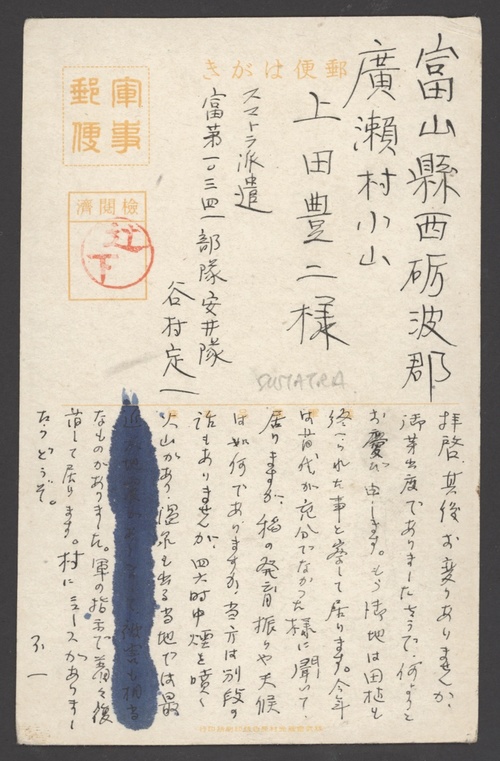 郵便はがき
軍事
郵便
検閲済
辻下
富山縣西砺波郡
廣瀬村小山
上田豊二様
スマトラ派遣
富第一〇三四一部隊安井隊
谷村定一
SUMATRA
拝啓、其後お変りありませんか、
御芽出度でありましたさうで、何よりと
お慶び申します。もう御地は田植も
終へられた事と察して居ります。今年
は苗代が充分でなかった様に聞いて
居りますが、稲の発育振りや天候
は如何でありますか、当方は別段の
話もありませんが、四六時中煙を噴く
火山があり、温泉も出る当地では最
近 地 被害も相当
なものがありました。軍の指示で着々復
して居ります。村にニュースがありまし
たらどうぞ。
不一